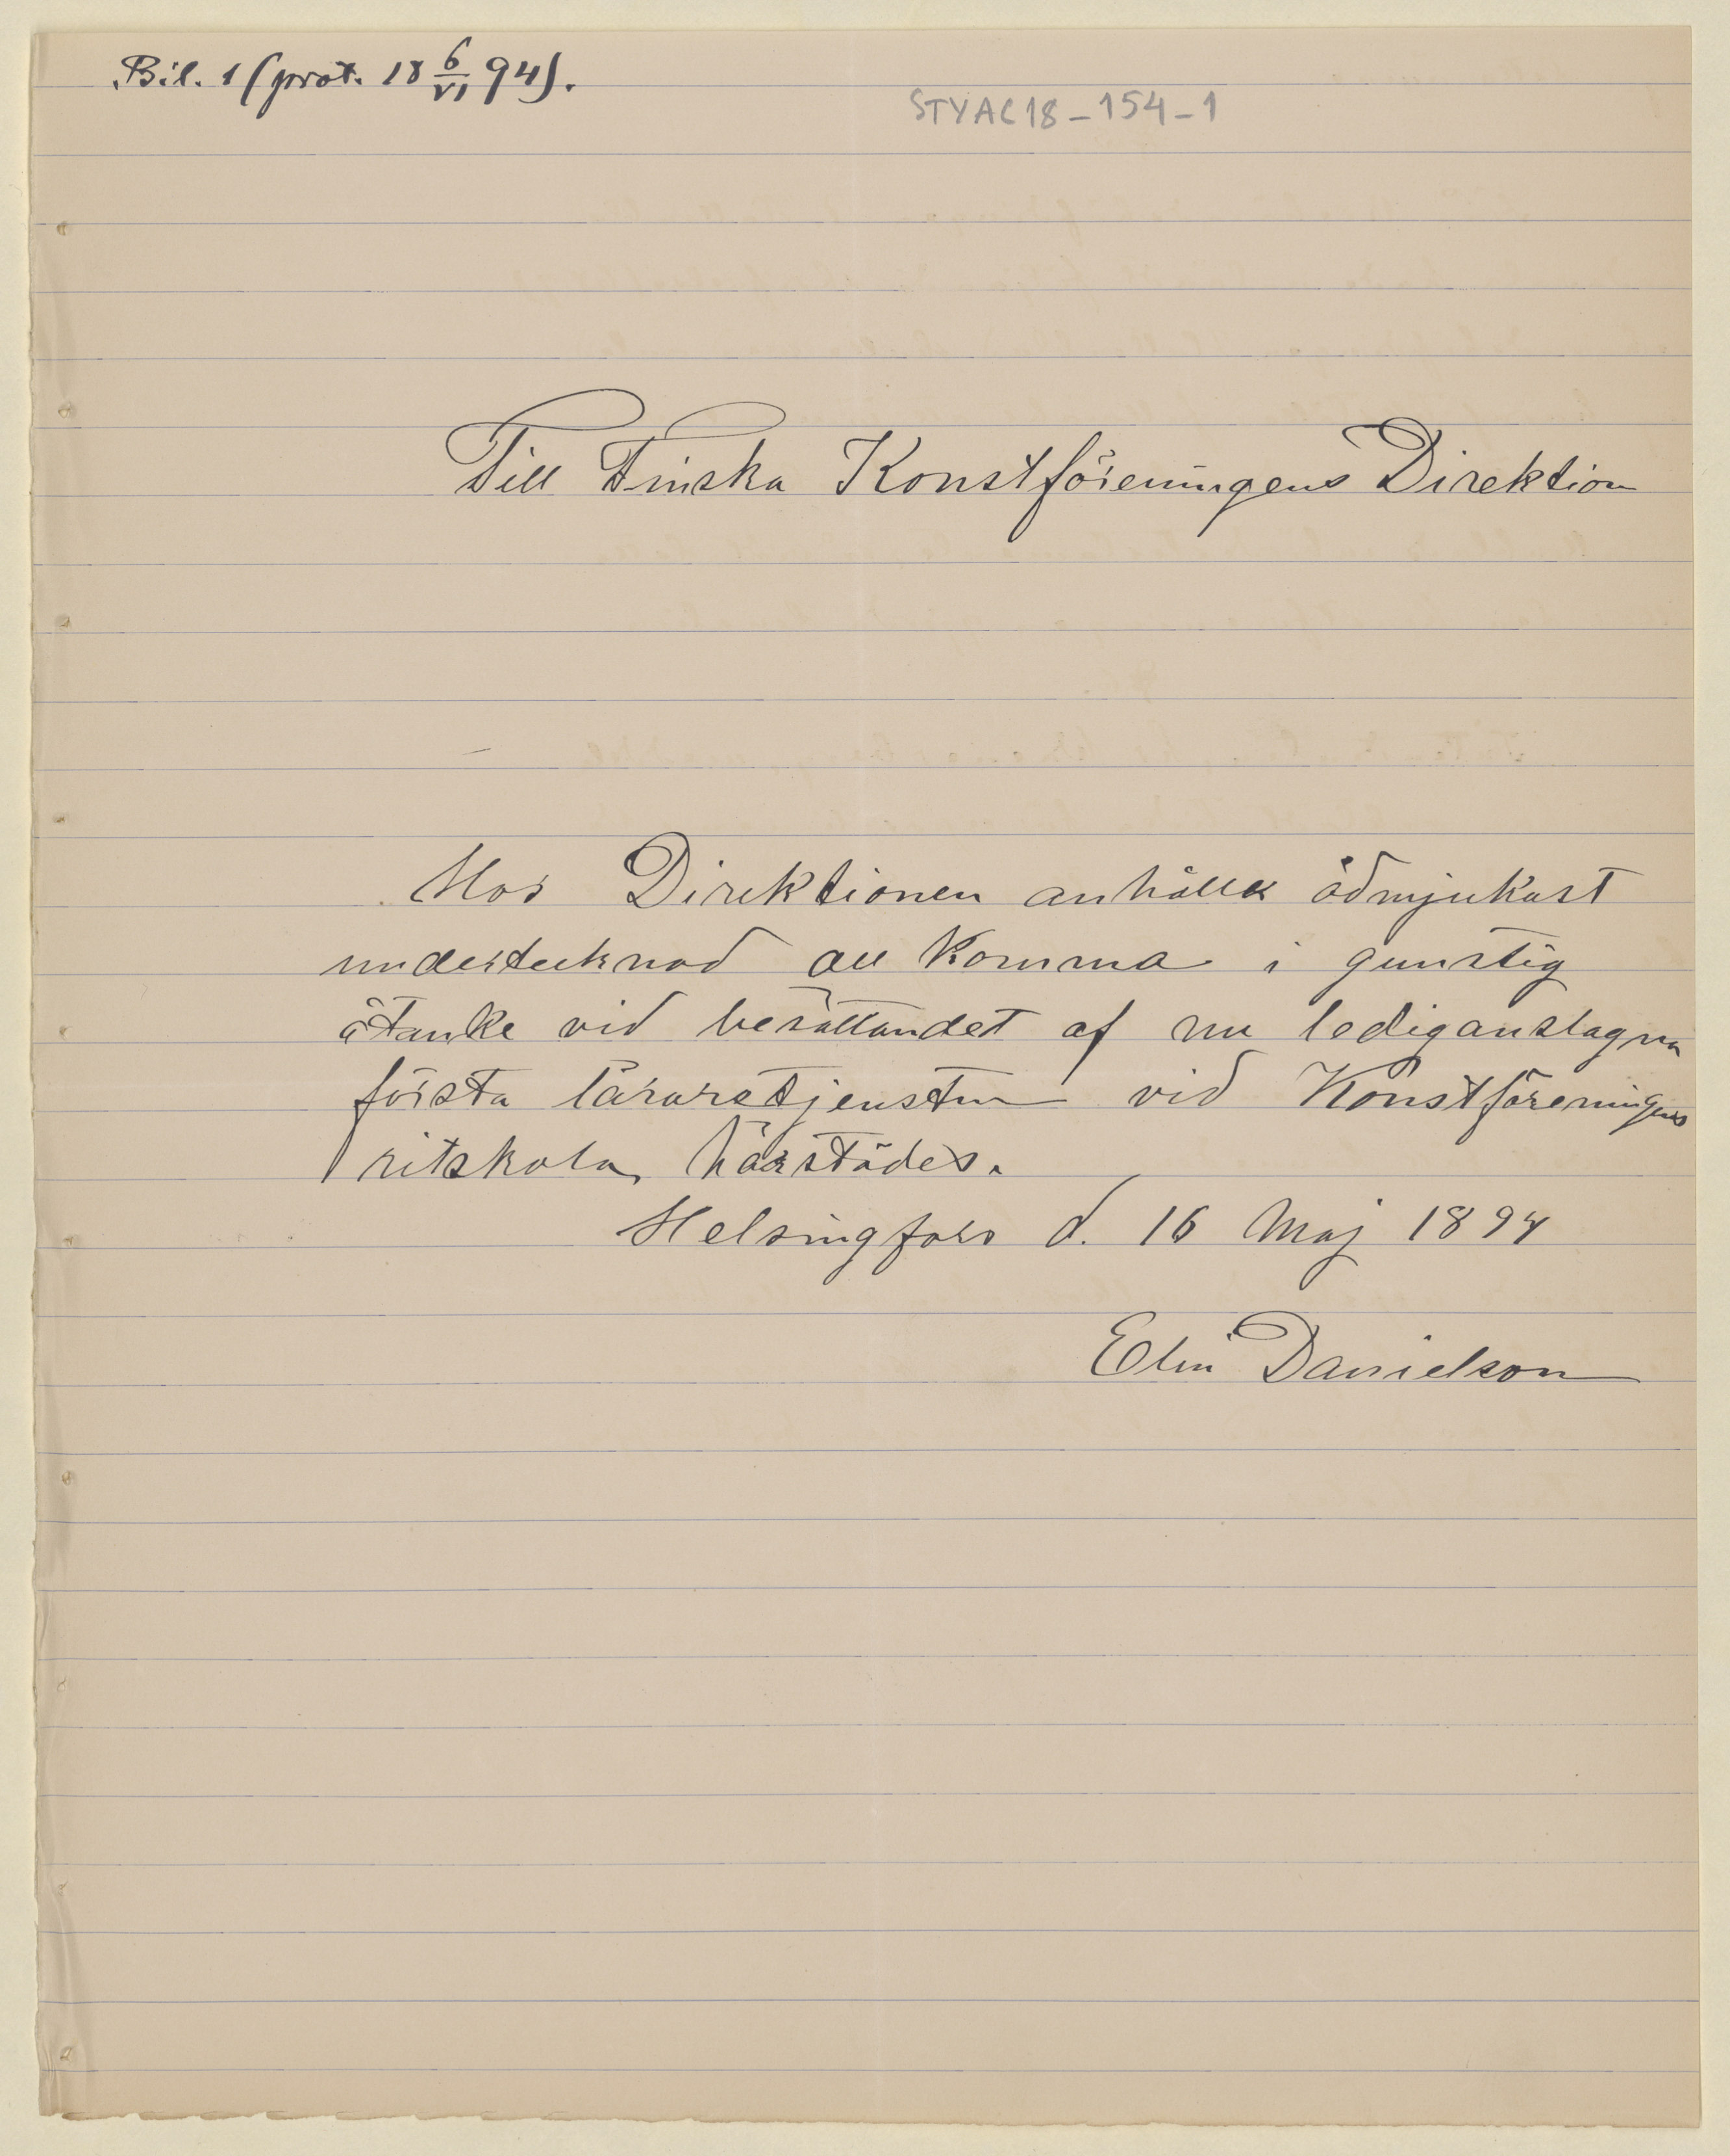 Bil. 1 (prot. 18 6/VI 94).
STYAC18-154-1
Till Finska Konstföreningens Direktion
Hos Direktionen anhåller ödmjukast
undertecknad att komma i gunstig
åtanke vid besättandet af nu lediganslagna
första lärarstjensten vid Konstföreningens
ritskola härstädes.
Helsingfors d. 16 Maj 1894
Elin Danielson